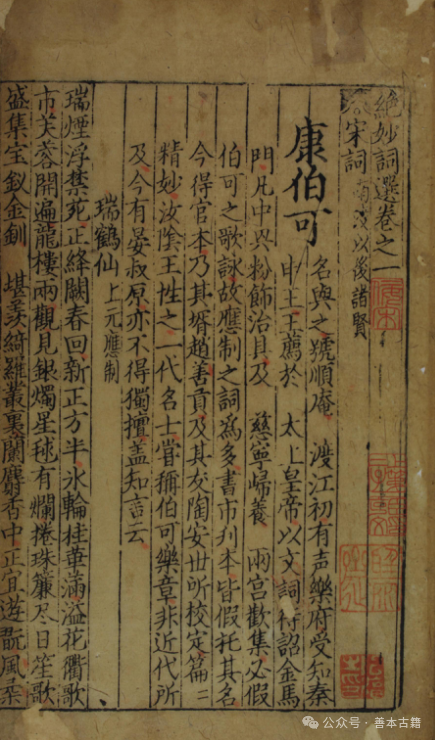 絶妙詞選卷之一
宋詞 南渡以後諸賢
康伯可 名與之號順庵 渡江初有声樂府受知秦
申王王薦於 太上皇帝以文詞待詔金馬
門凡中興粉飾治具及 慈寧歸養 兩宫歡集必假
伯可之歌詠故應制之詞為多書市刋本皆假托其名
今得官本乃其壻趙善貢及其友陶安世所校定篇〻
精妙汝陰王性之一代名士嘗稱伯可樂章非近代所
及今有晏叔原亦不得獨擅盖知言云
瑞鶴仙 上元應制
瑞煙浮禁苑正絳闕春回新正方半氷輪桂華滿溢花衢歌
市芙蓉開遍龍樓兩觀見銀燭星毬有爛捲珠簾尽日笙歌
盛集宝釵金釧 堪羡綺羅叢裏蘭麝香中正宜遊翫風柔
公众号·善本古籍